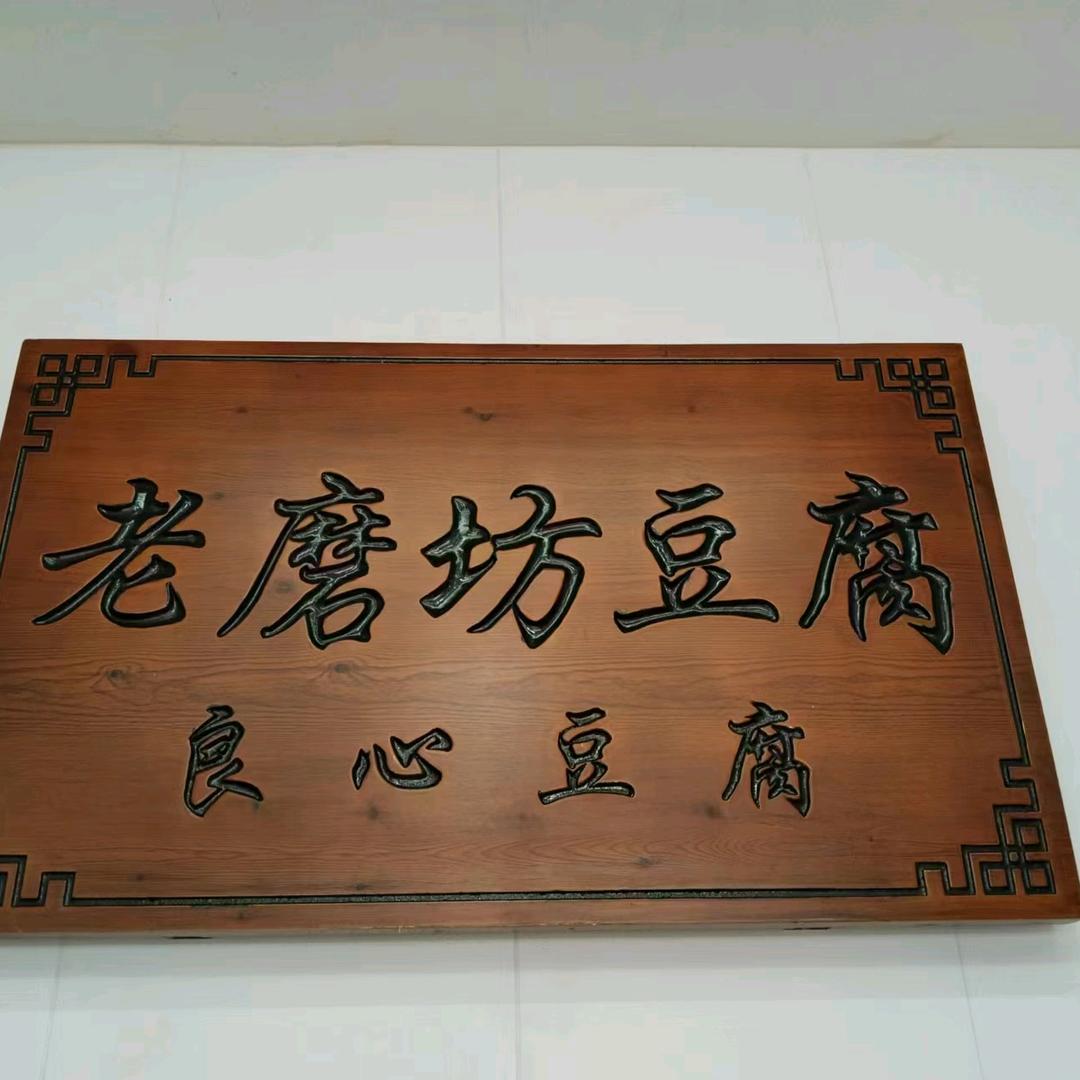 老磨坊豆腐
良心豆腐